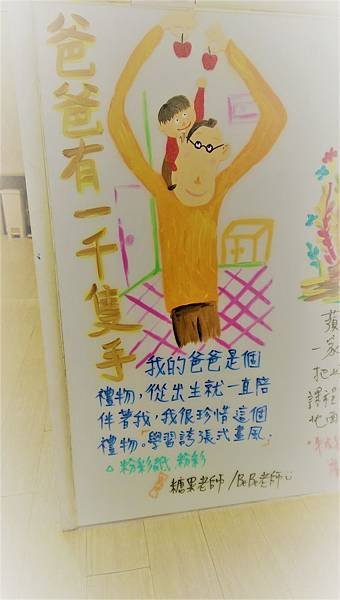 爸爸有一千隻手
我的爸爸是個
禮物，從出生就一直陪
伴著我，我很珍惜這個
禮物。學習誇張式畫風.
粉彩紙 粉彩
糖果老師/尼尼老師
蘋
一家
把
課程
地面